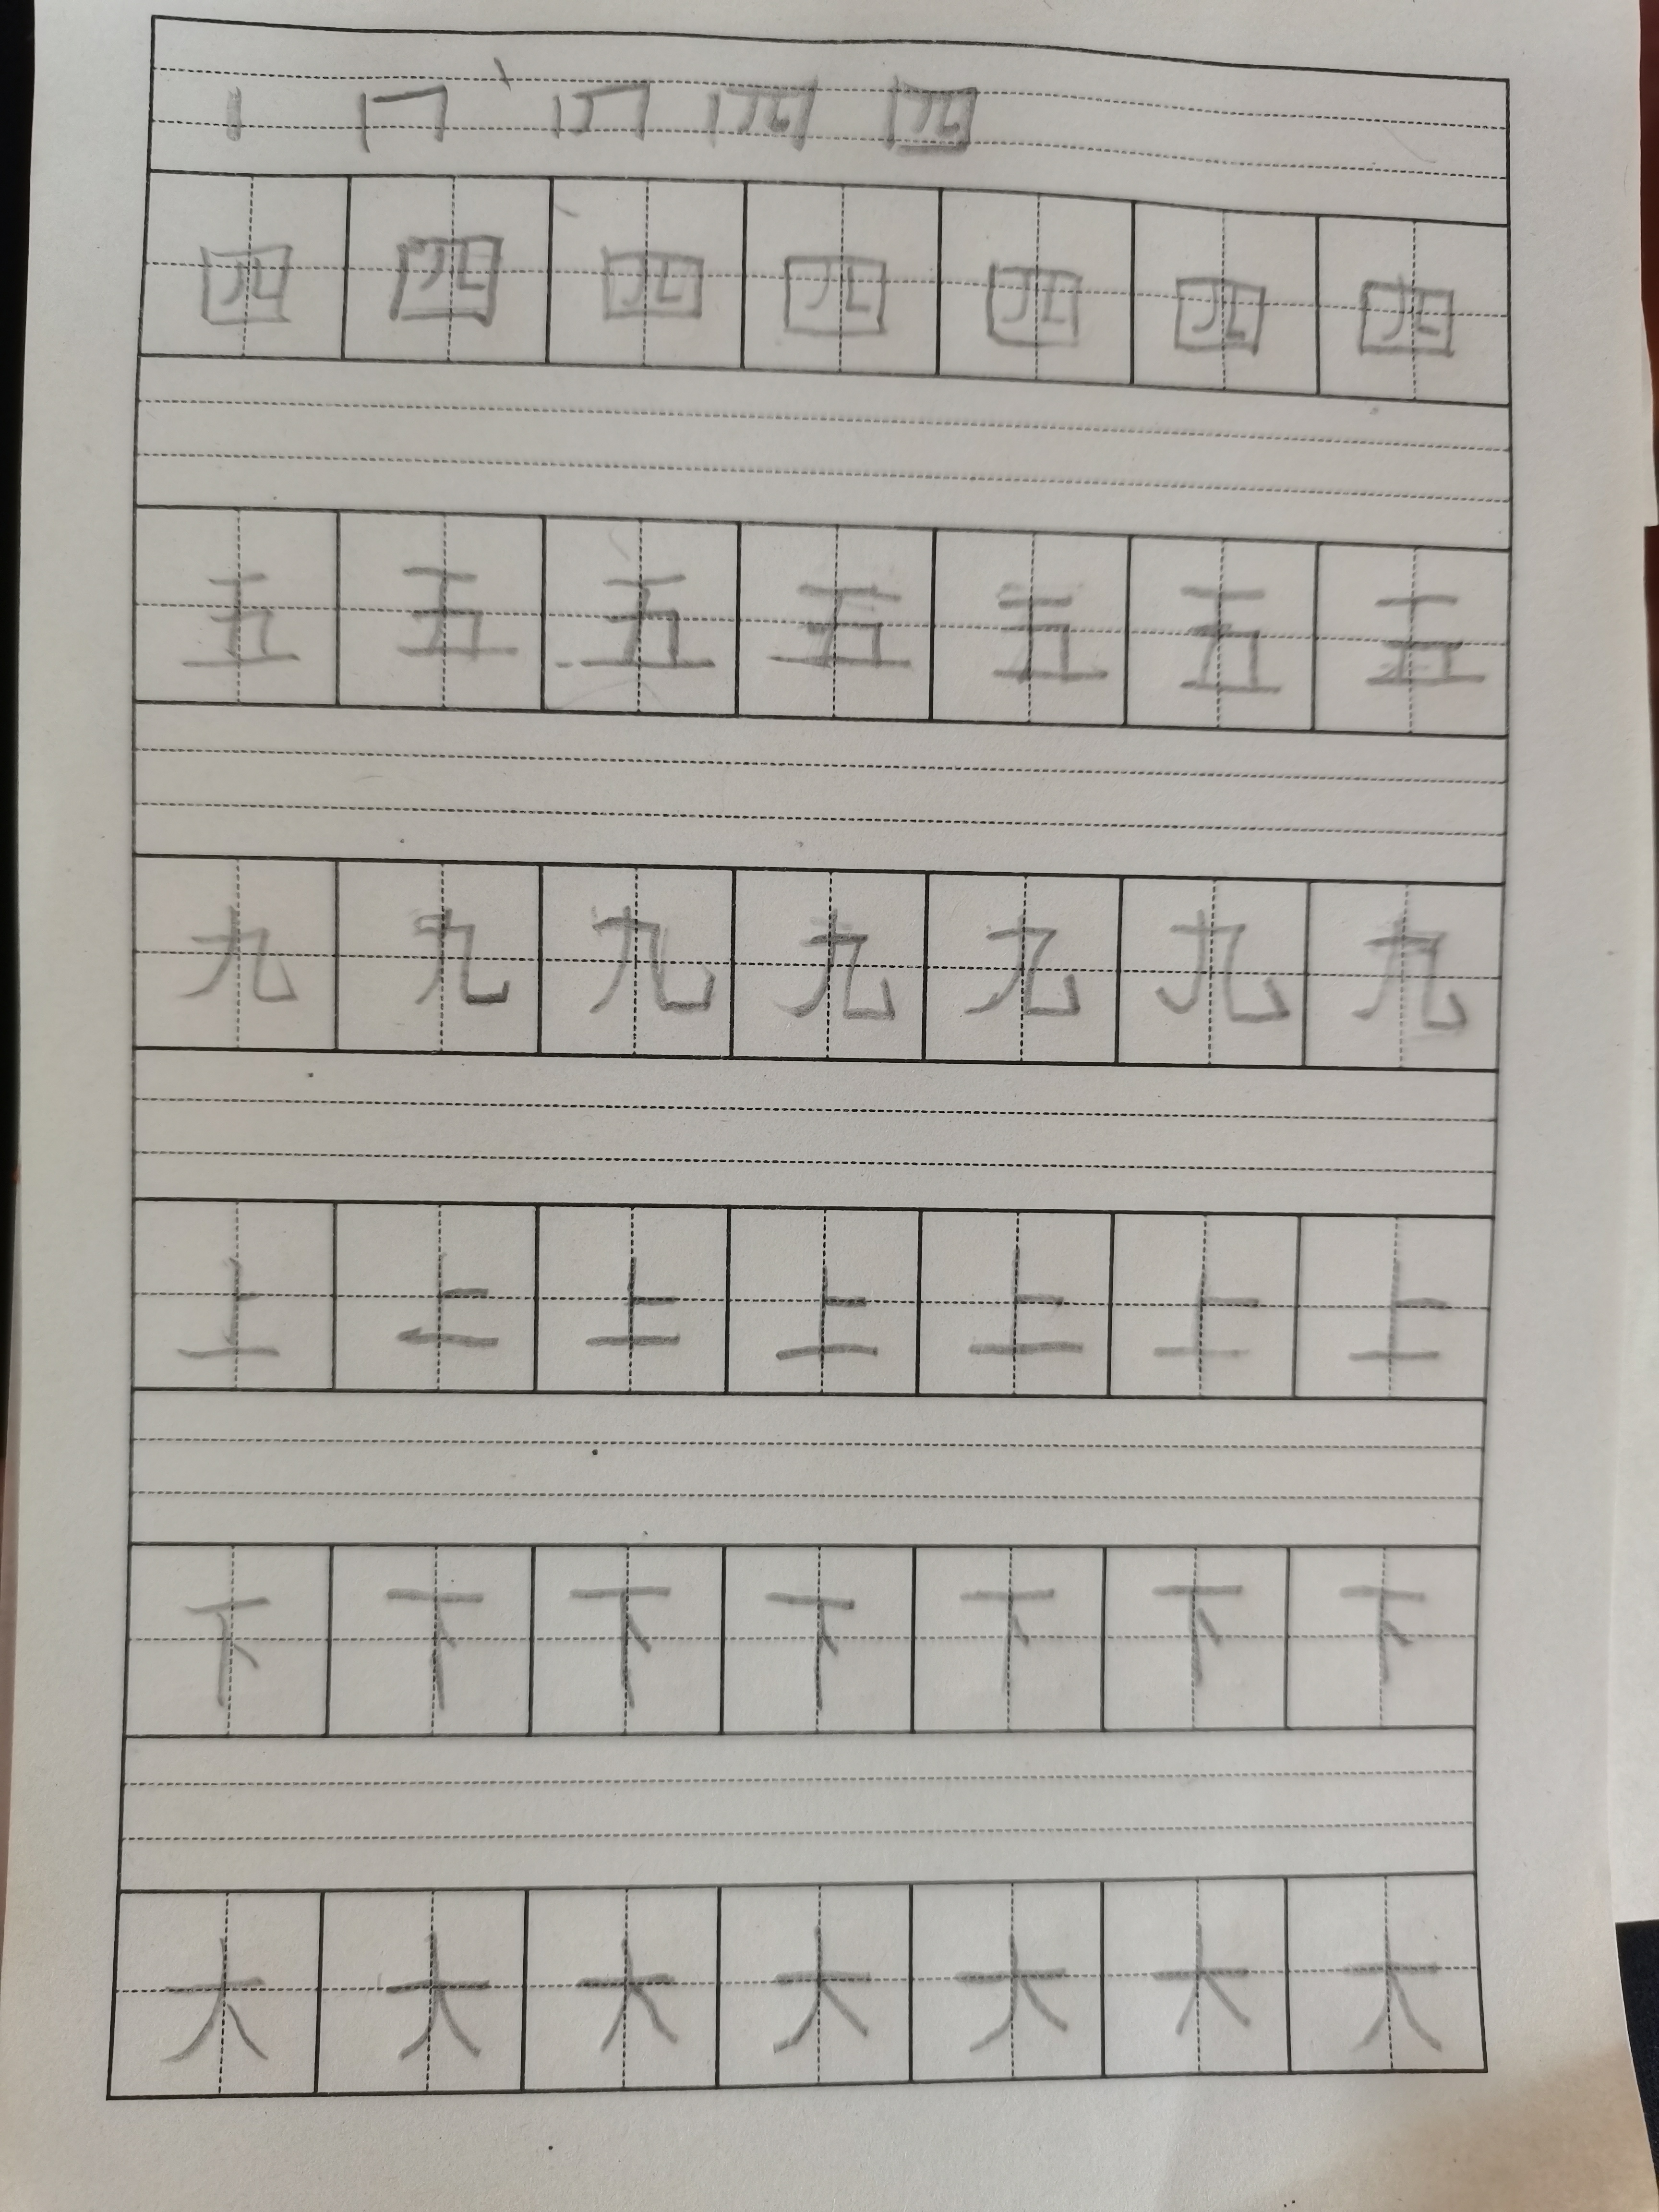 四
四四四四四四四
五五五五五五五
九九九九九九九
上上上上上上上
下下下下下下下
大大大大大大大